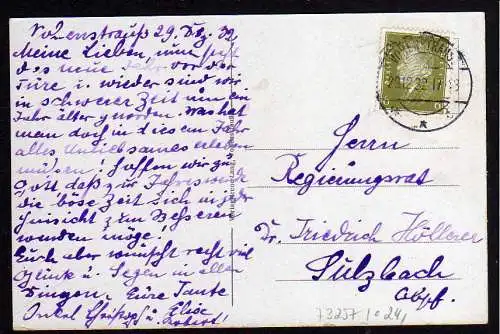 Vohenstrauß 29. Dez. 32
Meine Lieben, nun steht
das neue Jahr vor der
Türe u. wieder sind wir
in schwerer Zeit um ein
Jahr älter geworden. Was hat
man doch in diesem Jahr
alles Unliebsames erleben
müssen! Hoffen wir zu
Gott daß zur Jahreswende
die böse Zeit sich in jeder
Hinsicht zum Besseren
wenden möge!
Euch aber wünscht recht viel
Glück u. Segen in allen
Dingen. Eure Tante
Elise
Onkel u. Robert!
29.12.32.17
Herrn
Regierungsrat
Dr. Friedrich Höllerer
Sulzbach
Obpf.
73257